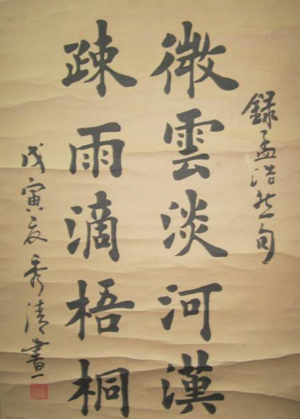 錄孟浩然句
微雲淡河漢
疎雨滴梧桐
戊寅夏秀清書